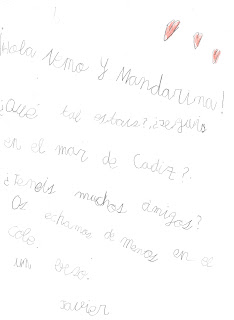 ¡Hola Nemo Y Mandarina!
¿Qué tal estais?, ¿seguis
en el mar de Cadiz?.
¿Teneis muchos amigos?
Os echamos de menos en el
cole.
un beso.
Javier